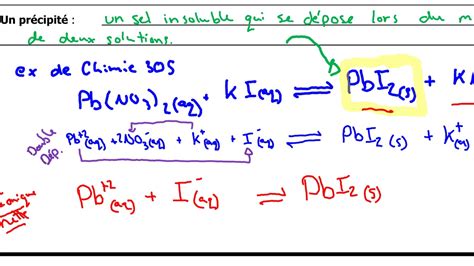 Un précipité : un sel insoluble qui se dépose lors du m
de deux solutions.
ex de Chimie 30S
Pb(NO₃)₂(aq) + KI(aq) ⇌ PbI₂(s) + K
Double Dép.
Pb⁺²(aq) + 2NO₃⁻(aq) + K⁺(aq) + I⁻(aq) ⇌ PbI₂(s) + K⁺(aq)
ionique
nette
Pb⁺²(aq) + I⁻(aq) ⇌ PbI₂(s)